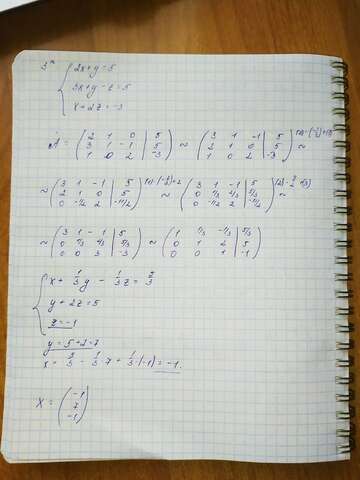 3* { 2x+y=5
3x+y-z=5
x+2z=-3
Ã = ( 2 1 0 | 5
3 1 -1 | 5
1 0 2 | -3 ) ~ ( 3 1 -1 | 5
2 1 0 | 5
1 0 2 | -3 ) ~
~ ( 3 1 -1 | 5
2 1 0 | 5
0 -1/2 2 | -11/2 ) ~ ( 3 1 -1 | 5
0 1/3 2/3 | 5/3
0 -1/2 2 | -11/2 ) ~
~ ( 3 1 -1 | 5
0 1/3 2/3 | 5/3
0 0 3 | -3 ) ~ ( 1 1/3 -1/3 | 5/3
0 1 2 | 5
0 0 1 | -1 )
y+2z=5
z=-1
y=5+2=7
X = ( -1
7
-1 )